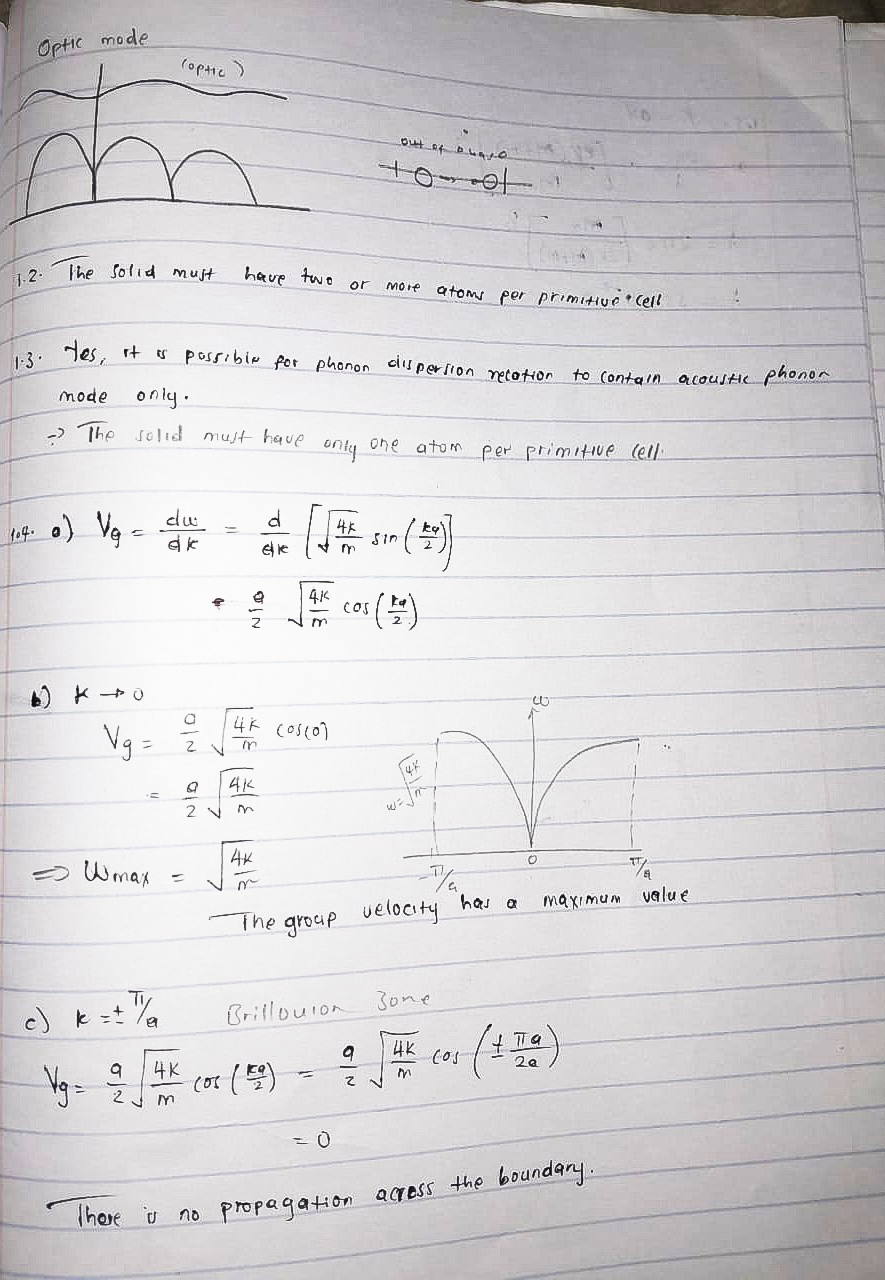 Optic mode
(optic)
out of phase
1.2. The solid must have two or more atoms per primitive cell
1.3. Yes, it is possible for phonon dispersion relation to contain acoustic phonon
mode only.
→ The solid must have only one atom per primitive cell.
1.4. a) Vg = dω/dk = d/dk [√(4K/m) sin (ka/2)]
= a/2 √(4K/m) cos (ka/2)
b) K → 0
Vg = a/2 √(4K/m) cos(0)
= a/2 √(4K/m)
⇒ ωmax = √(4K/m)
ω
ω = √(4K/m)
-π/a 0 π/a
The group velocity has a maximum value
c) k = ± π/a Brillouion Zone
Vg = a/2 √(4K/m) cos (ka/2) = a/2 √(4K/m) cos (± πa/2a)
= 0
There is no propagation across the boundary.